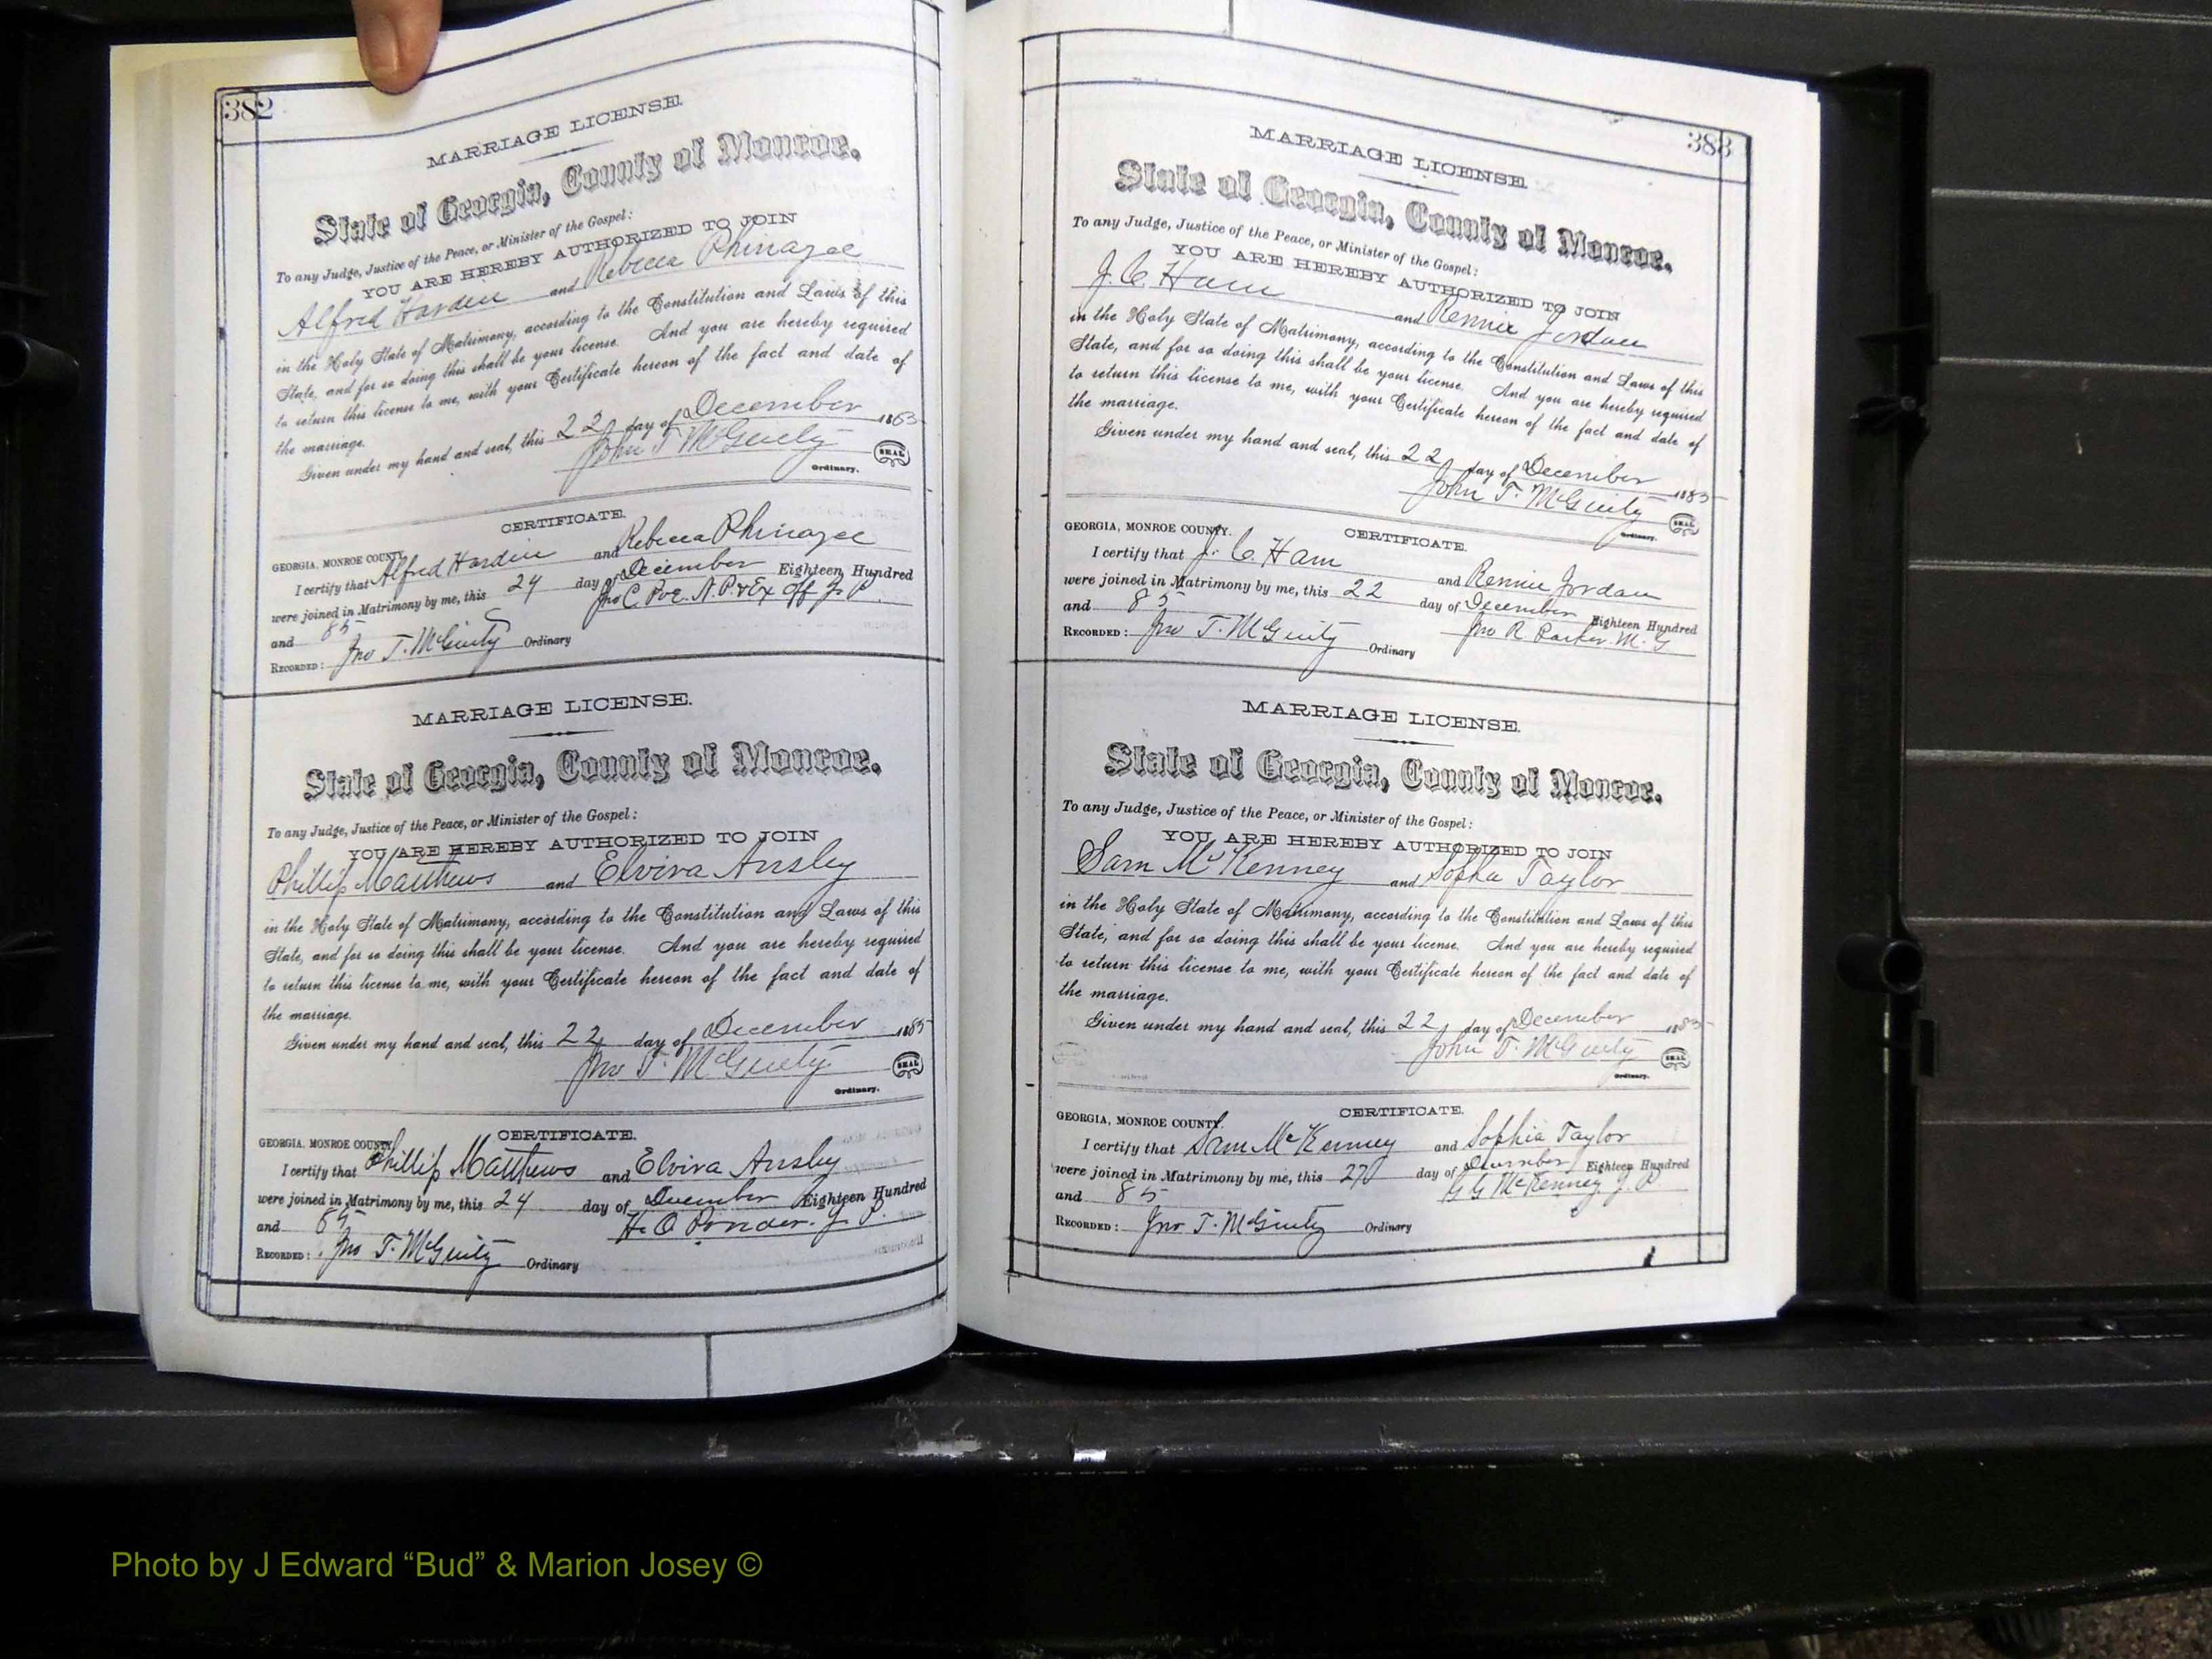 382
MARRIAGE LICENSE.
State of Georgia, County of Monroe.
To any Judge, Justice of the Peace, or Minister of the Gospel:
YOU ARE HEREBY AUTHORIZED TO JOIN
Alfred Harden and Rebecca Phinazee
in the Holy State of Matrimony, according to the Constitution and Laws of this
State, and for so doing this shall be your license. And you are hereby required
to return this license to me, with your Certificate hereon of the fact and date of
the marriage.
Given under my hand and seal, this 22 day of December 1885
John T McGinty SEAL
Ordinary.
CERTIFICATE.
GEORGIA, MONROE COUNTY.
I certify that Alfred Hardin and Rebecca Phinazee
were joined in Matrimony by me, this 24 day of December Eighteen Hundred
and 85 Jno C. Poe. N.P. & Ex off J. P.
RECORDED: Jno T. McGinty Ordinary
MARRIAGE LICENSE.
State of Georgia, County of Monroe.
To any Judge, Justice of the Peace, or Minister of the Gospel:
YOU ARE HEREBY AUTHORIZED TO JOIN
Phillip Matthews and Elvira Ansley
in the Holy State of Matrimony, according to the Constitution and Laws of this
State, and for so doing this shall be your license. And you are hereby required
to return this license to me, with your Certificate hereon of the fact and date of
the marriage.
Given under my hand and seal, this 22 day of December 1885
Jno T. McGinty SEAL
Ordinary.
CERTIFICATE.
GEORGIA, MONROE COUNTY.
I certify that Phillip Matthews and Elvira Ansley
were joined in Matrimony by me, this 24 day of December Eighteen Hundred
and 85 H. O. Ponder. J. P.
RECORDED: Jno T. McGinty Ordinary
383
MARRIAGE LICENSE.
State of Georgia, County of Monroe.
To any Judge, Justice of the Peace, or Minister of the Gospel:
YOU ARE HEREBY AUTHORIZED TO JOIN
J. C. Ham and Rennie Jordan
in the Holy State of Matrimony, according to the Constitution and Laws of this
State, and for so doing this shall be your license. And you are hereby required
to return this license to me, with your Certificate hereon of the fact and date of
the marriage.
Given under my hand and seal, this 22 day of December 1885
John T. McGinty SEAL
Ordinary.
CERTIFICATE.
GEORGIA, MONROE COUNTY.
I certify that J. C. Ham and Rennie Jordan
were joined in Matrimony by me, this 22 day of December Eighteen Hundred
and 85 Jno R. Parker. M. G
RECORDED: Jno T. McGinty Ordinary
MARRIAGE LICENSE.
State of Georgia, County of Monroe.
To any Judge, Justice of the Peace, or Minister of the Gospel:
YOU ARE HEREBY AUTHORIZED TO JOIN
Sam McKenney and Sophia Taylor
in the Holy State of Matrimony, according to the Constitution and Laws of this
State, and for so doing this shall be your license. And you are hereby required
to return this license to me, with your Certificate hereon of the fact and date of
the marriage.
Given under my hand and seal, this 22 day of December 1885
John T. McGinty SEAL
Ordinary.
CERTIFICATE.
GEORGIA, MONROE COUNTY.
I certify that Sam McKenney and Sophia Taylor
were joined in Matrimony by me, this 27 day of December Eighteen Hundred
and 85 G G McKenney J. P
RECORDED: Jno T. McGinty Ordinary
Photo by J Edward “Bud” & Marion Josey ©